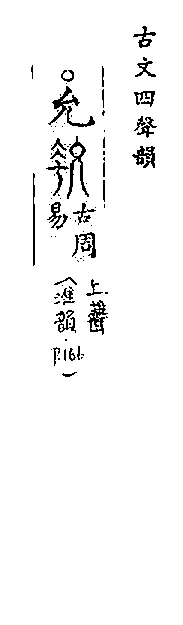 古文四聲韻
○允
古周
易
上
(准韻.P.166)